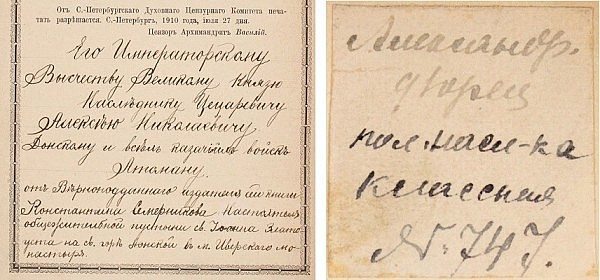 Отъ С.-Петербургскаго Духовнаго Цензурнаго Комитета печа-
тать разрѣшается. С.-Петербургъ, 1910 года, іюля 27 дня.
Цензоръ Архимандритъ Василій.
Его Императорскому
Высочеству Великому Князю
Наслѣднику Цесаревичу
Алексѣю Николаевичу
Донскому и всѣхъ казачьихъ войскъ
Атаману.
отъ Вѣрноподданнаго издателя сей книги
Константина Семерникова Настоятеля
общежительной пустыни св. Іоанна Злато
уста на св. горѣ Аѳонской в м. Иверскаго мо-
настыря.
Александр.
дворец
пол. насл-ка
классная
№ 747.